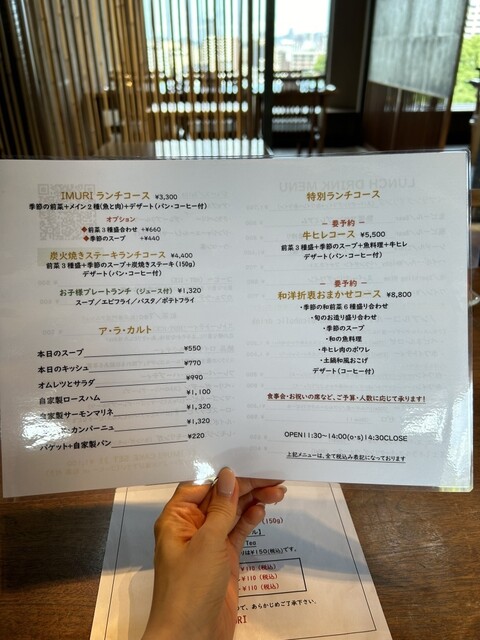 IMURI ランチコース ¥3,300
季節の前菜+メイン2種(魚と肉)+デザート(パン・コーヒー付)
オプション
◆前菜3種盛合わせ +¥660
◆季節のスープ +¥440
炭火焼きステーキランチコース ¥4,400
前菜3種盛+季節のスープ+炭焼きステーキ(150g)
デザート(パン・コーヒー付)
お子様プレートランチ (ジュース付) ¥1,320
スープ/エビフライ/パスタ/ポテトフライ
ア・ラ・カルト
本日のスープ ¥550
本日のキッシュ ¥770
オムレツとサラダ ¥990
自家製ロースハム ¥1,100
自家製サーモンマリネ ¥1,320
・カンパーニュ ¥1,320
バゲット+自家製パン ¥220
特別ランチコース
― 要予約 ―
牛ヒレコース ¥5,500
前菜3種盛+季節のスープ+魚料理+牛ヒレ
デザート(パン・コーヒー付)
― 要予約 ―
和洋折衷おまかせコース ¥8,800
・季節の和前菜6種盛り合わせ
・旬のお造り盛り合わせ
・季節のスープ
・和の魚料理
・牛ヒレ肉のポワレ
・土鍋和風おこげ
デザート(コーヒー付)
食事会・お祝いの席など、ご予算・人数に応じて承ります!
OPEN11:30~14:00(o・s)14:30CLOSE
上記メニューは、全て税込み表記になっております
(150g)
ル】
Tea
は¥150(税込)です。
¥110 (税込)
¥110 (税込)
¥110 (税込)
で、あらかじめご了承下さい。
URI